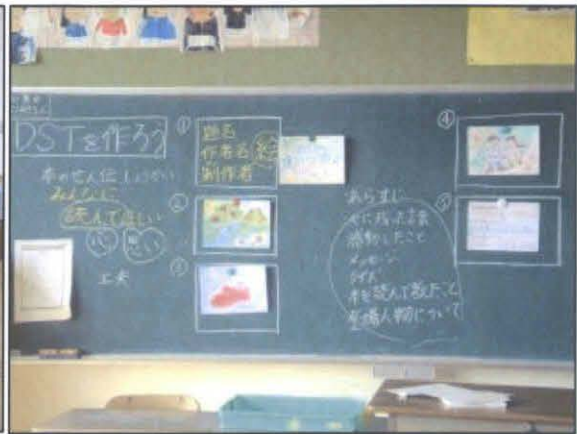 DSTを作ろう
本のせん伝 しょうかい
みんなに
読んでほしい
心 思い
工夫
①
題名
作者名 絵
制作者
②
③
あらすじ
心に残った言葉
感動したこと
メッセージ
クイズ
本を読んで考えたこと
登場人物について
④
⑤